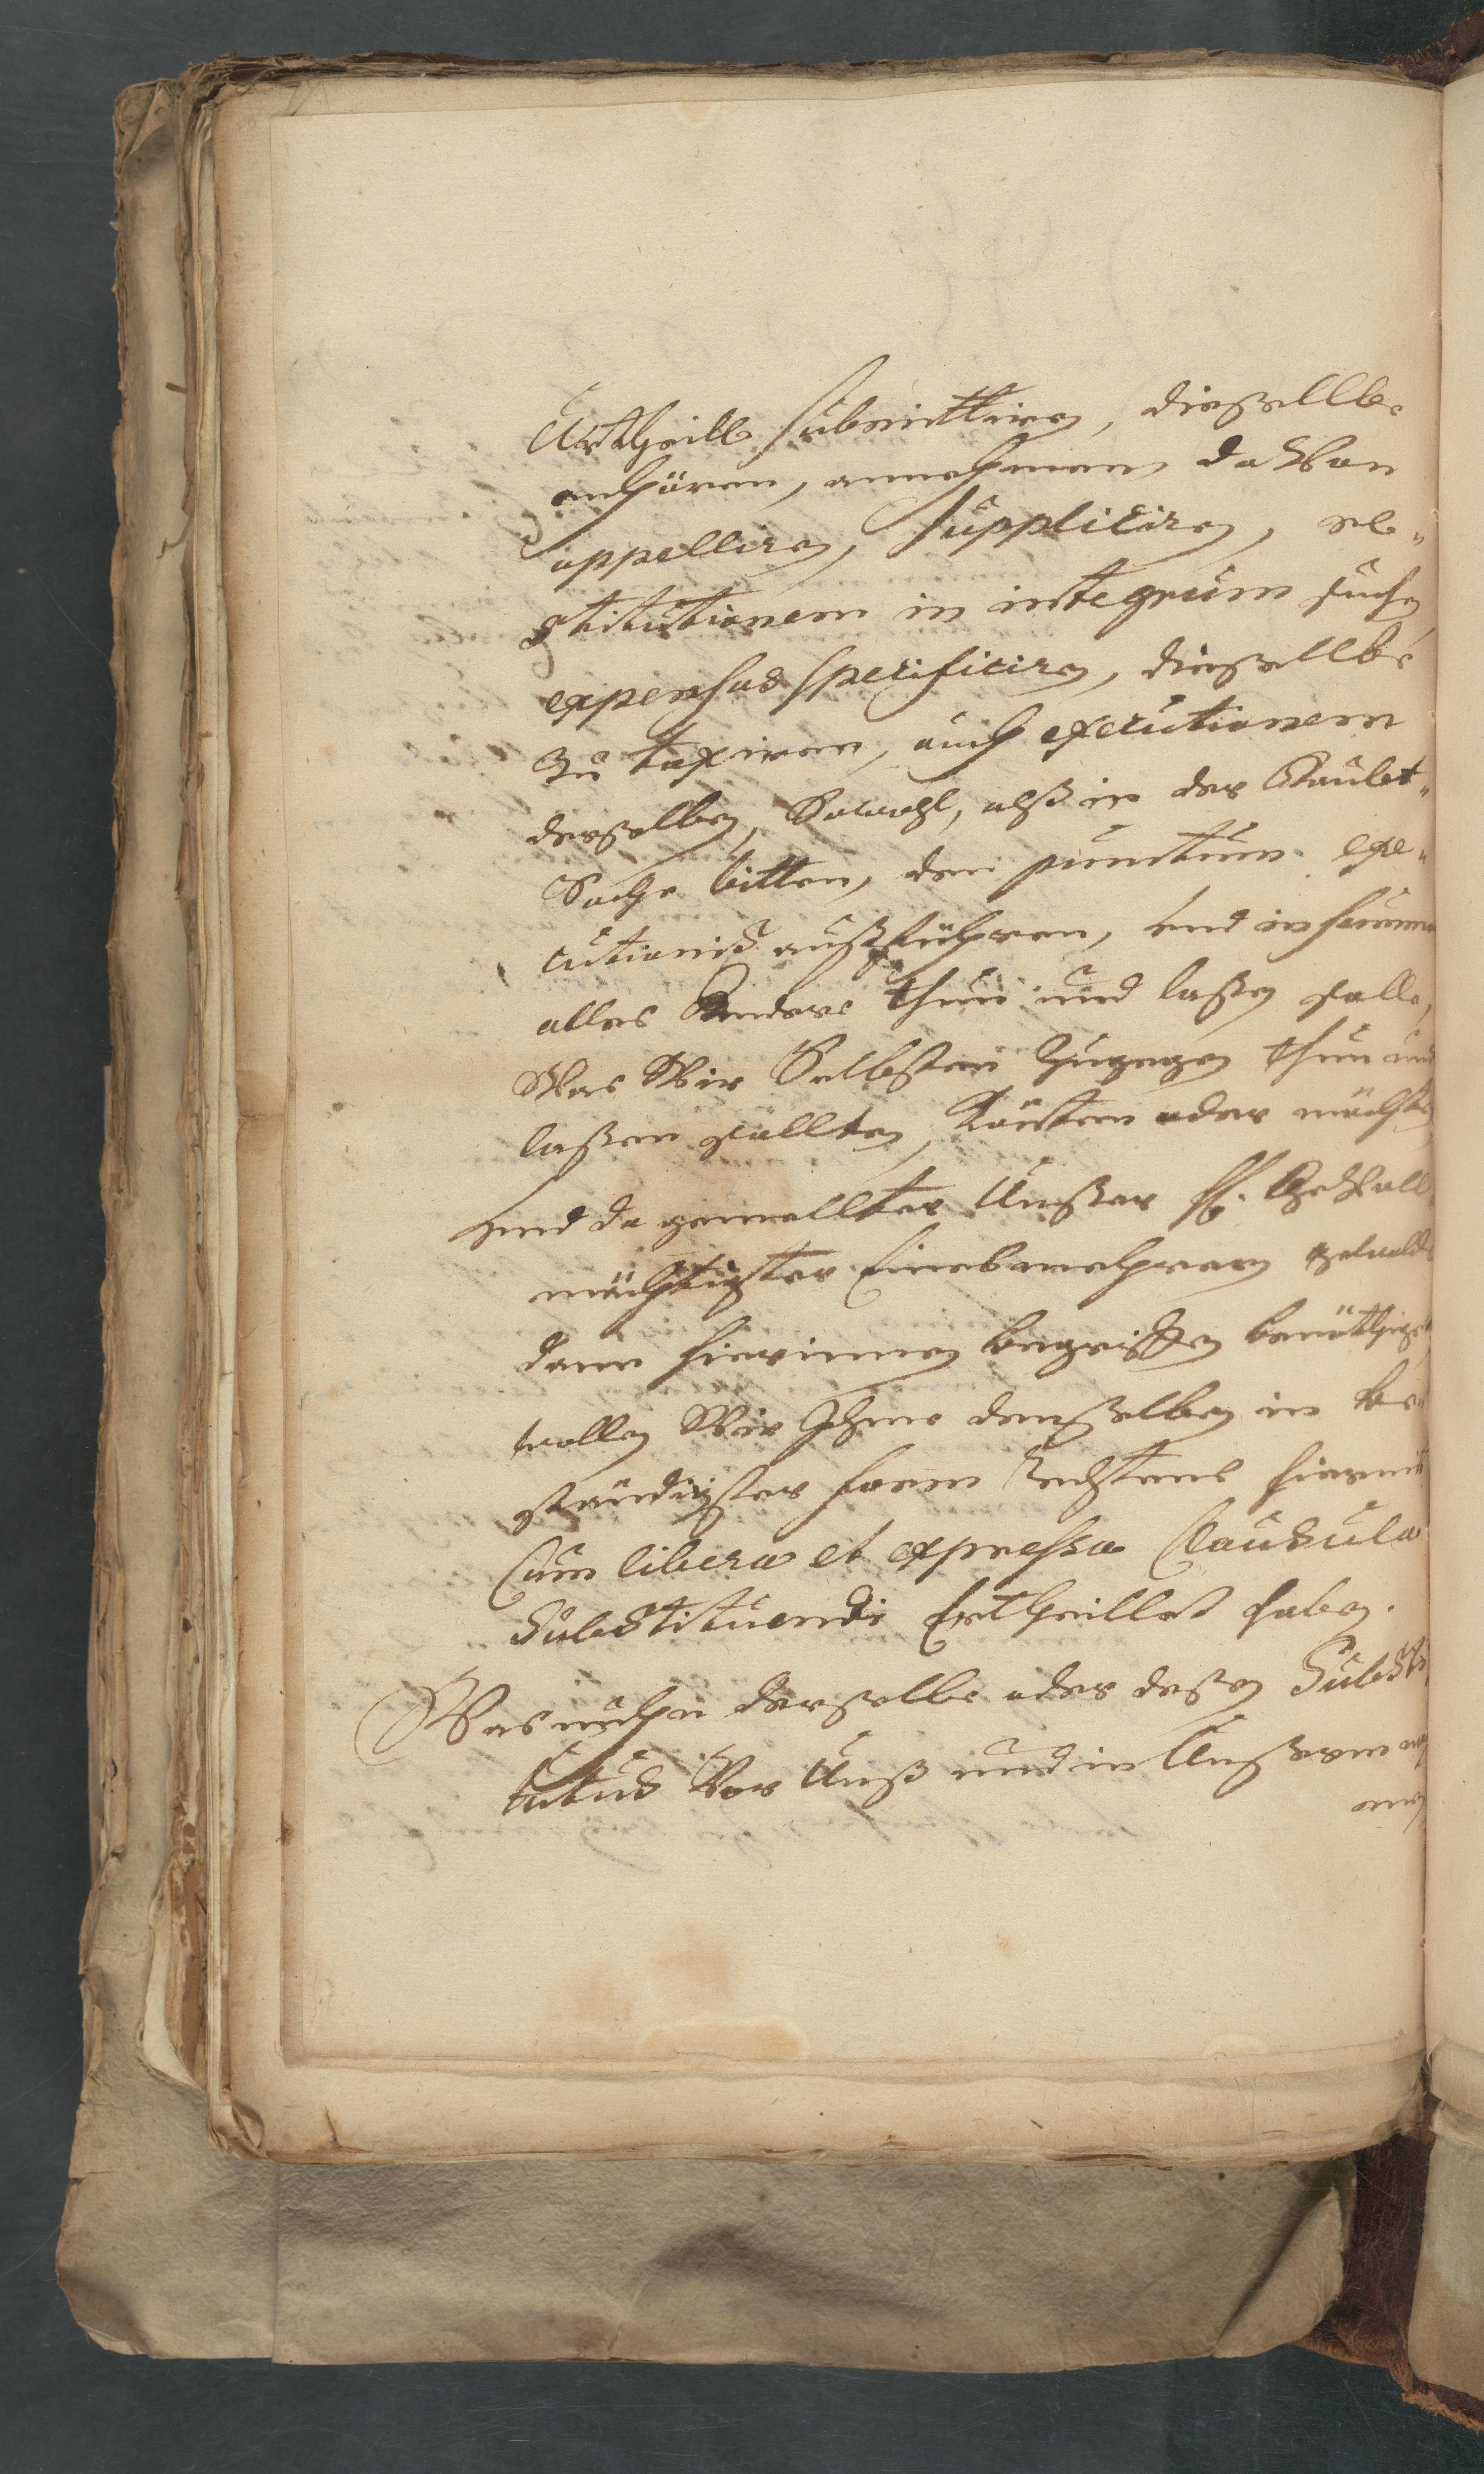 Urtheill submittiren, dießellbe
anhören, annehmen daVon
appelliren, suppliciren, re„
stitutionem in integrum suchen
expensas specificiren, dießellbe
zu taxiren, auch executionem
derßelben, Sowohl, alß in der Haubt„
Sache bitten, den punctum exe„
cutionis außführen, und in summa
alles Andere thun und laßen solle,
Was Wir Selbsten Zugegen thun und
laßen sollten, Könten oder möchten
Und da gemellter Unßer H. GeVoll„
mächtigter Eines mehreren gewaldts
dann hierinnen begriffen benöthiget
wollen Wir Ihme denßelben in be„
ständigster form Rechtens hiermit
Cum libera et expressa Clausula
Substituendi Ertheillet haben.
Was nuhn derselbe oder deßen Substi„
tutus Vor Unß und in Unßerm